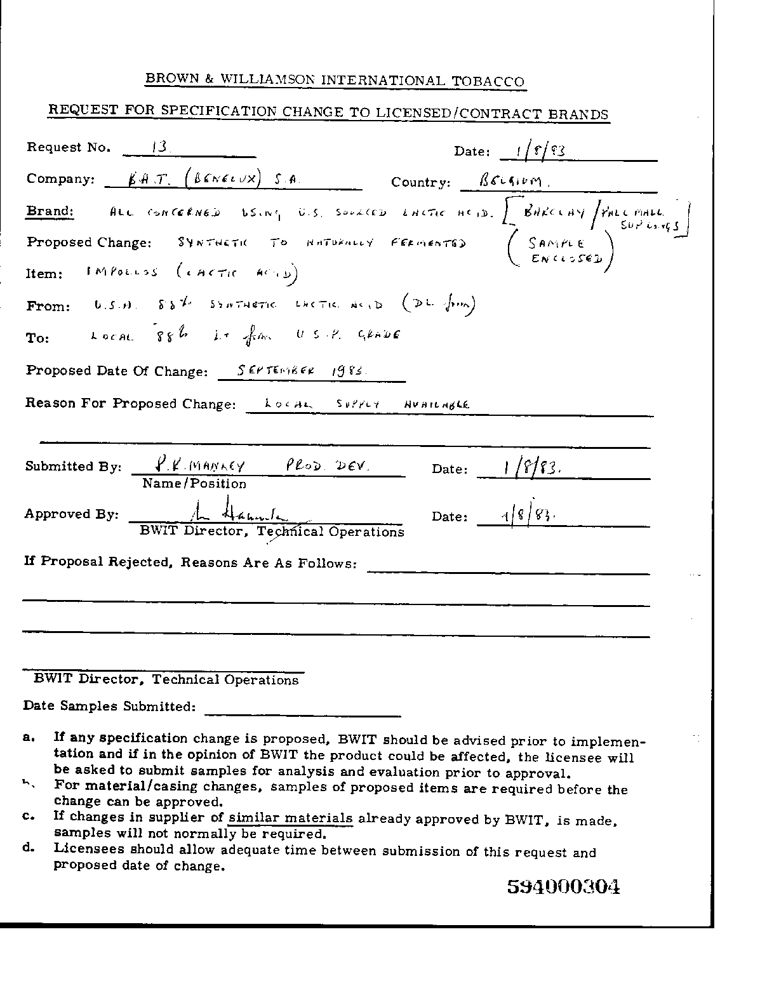 BROWN & WILLIAMSON INTERNATIONAL TOBACCO
REQUEST FOR SPECIFICATION CHANGE TO LICENSED/CONTRACT BRANDS
Request No. 13 Date: 1/8/83
Company: B.A.T. (BENELUX) S.A. Country: BELGIUM.
Brand: ALL CONCERNED USING U.S. SOURCED LACTIC ACID. [BARCLAY/PALL MALL
Proposed Change: SYNTHETIC TO NATURALLY FERMENTED (SAMPLE ENCLOSED)
Item: (LACTIC ACID)
From: U.S.A. 88% SYNTHETIC LACTIC ACID (DL form)
To: LOCAL 88% L+ form U.S.P. GRADE
Proposed Date Of Change: SEPTEMBER 1983.
Reason For Proposed Change: LOCAL SUPPLY AVAILABLE
Submitted By: PROD. DEV. Date: 1/8/83.
Name/Position
Approved By: Date: 1/8/83.
BWIT Director, Technical Operations
If Proposal Rejected, Reasons Are As Follows:
BWIT Director, Technical Operations
Date Samples Submitted:
a. If any specification change is proposed, BWIT should be advised prior to implemen-
tation and if in the opinion of BWIT the product could be affected, the licensee will
be asked to submit samples for analysis and evaluation prior to approval.
b. For material/casing changes, samples of proposed items are required before the
change can be approved.
c. If changes in supplier of similar materials already approved by BWIT, is made,
samples will not normally be required.
d. Licensees should allow adequate time between submission of this request and
proposed date of change.
594000304